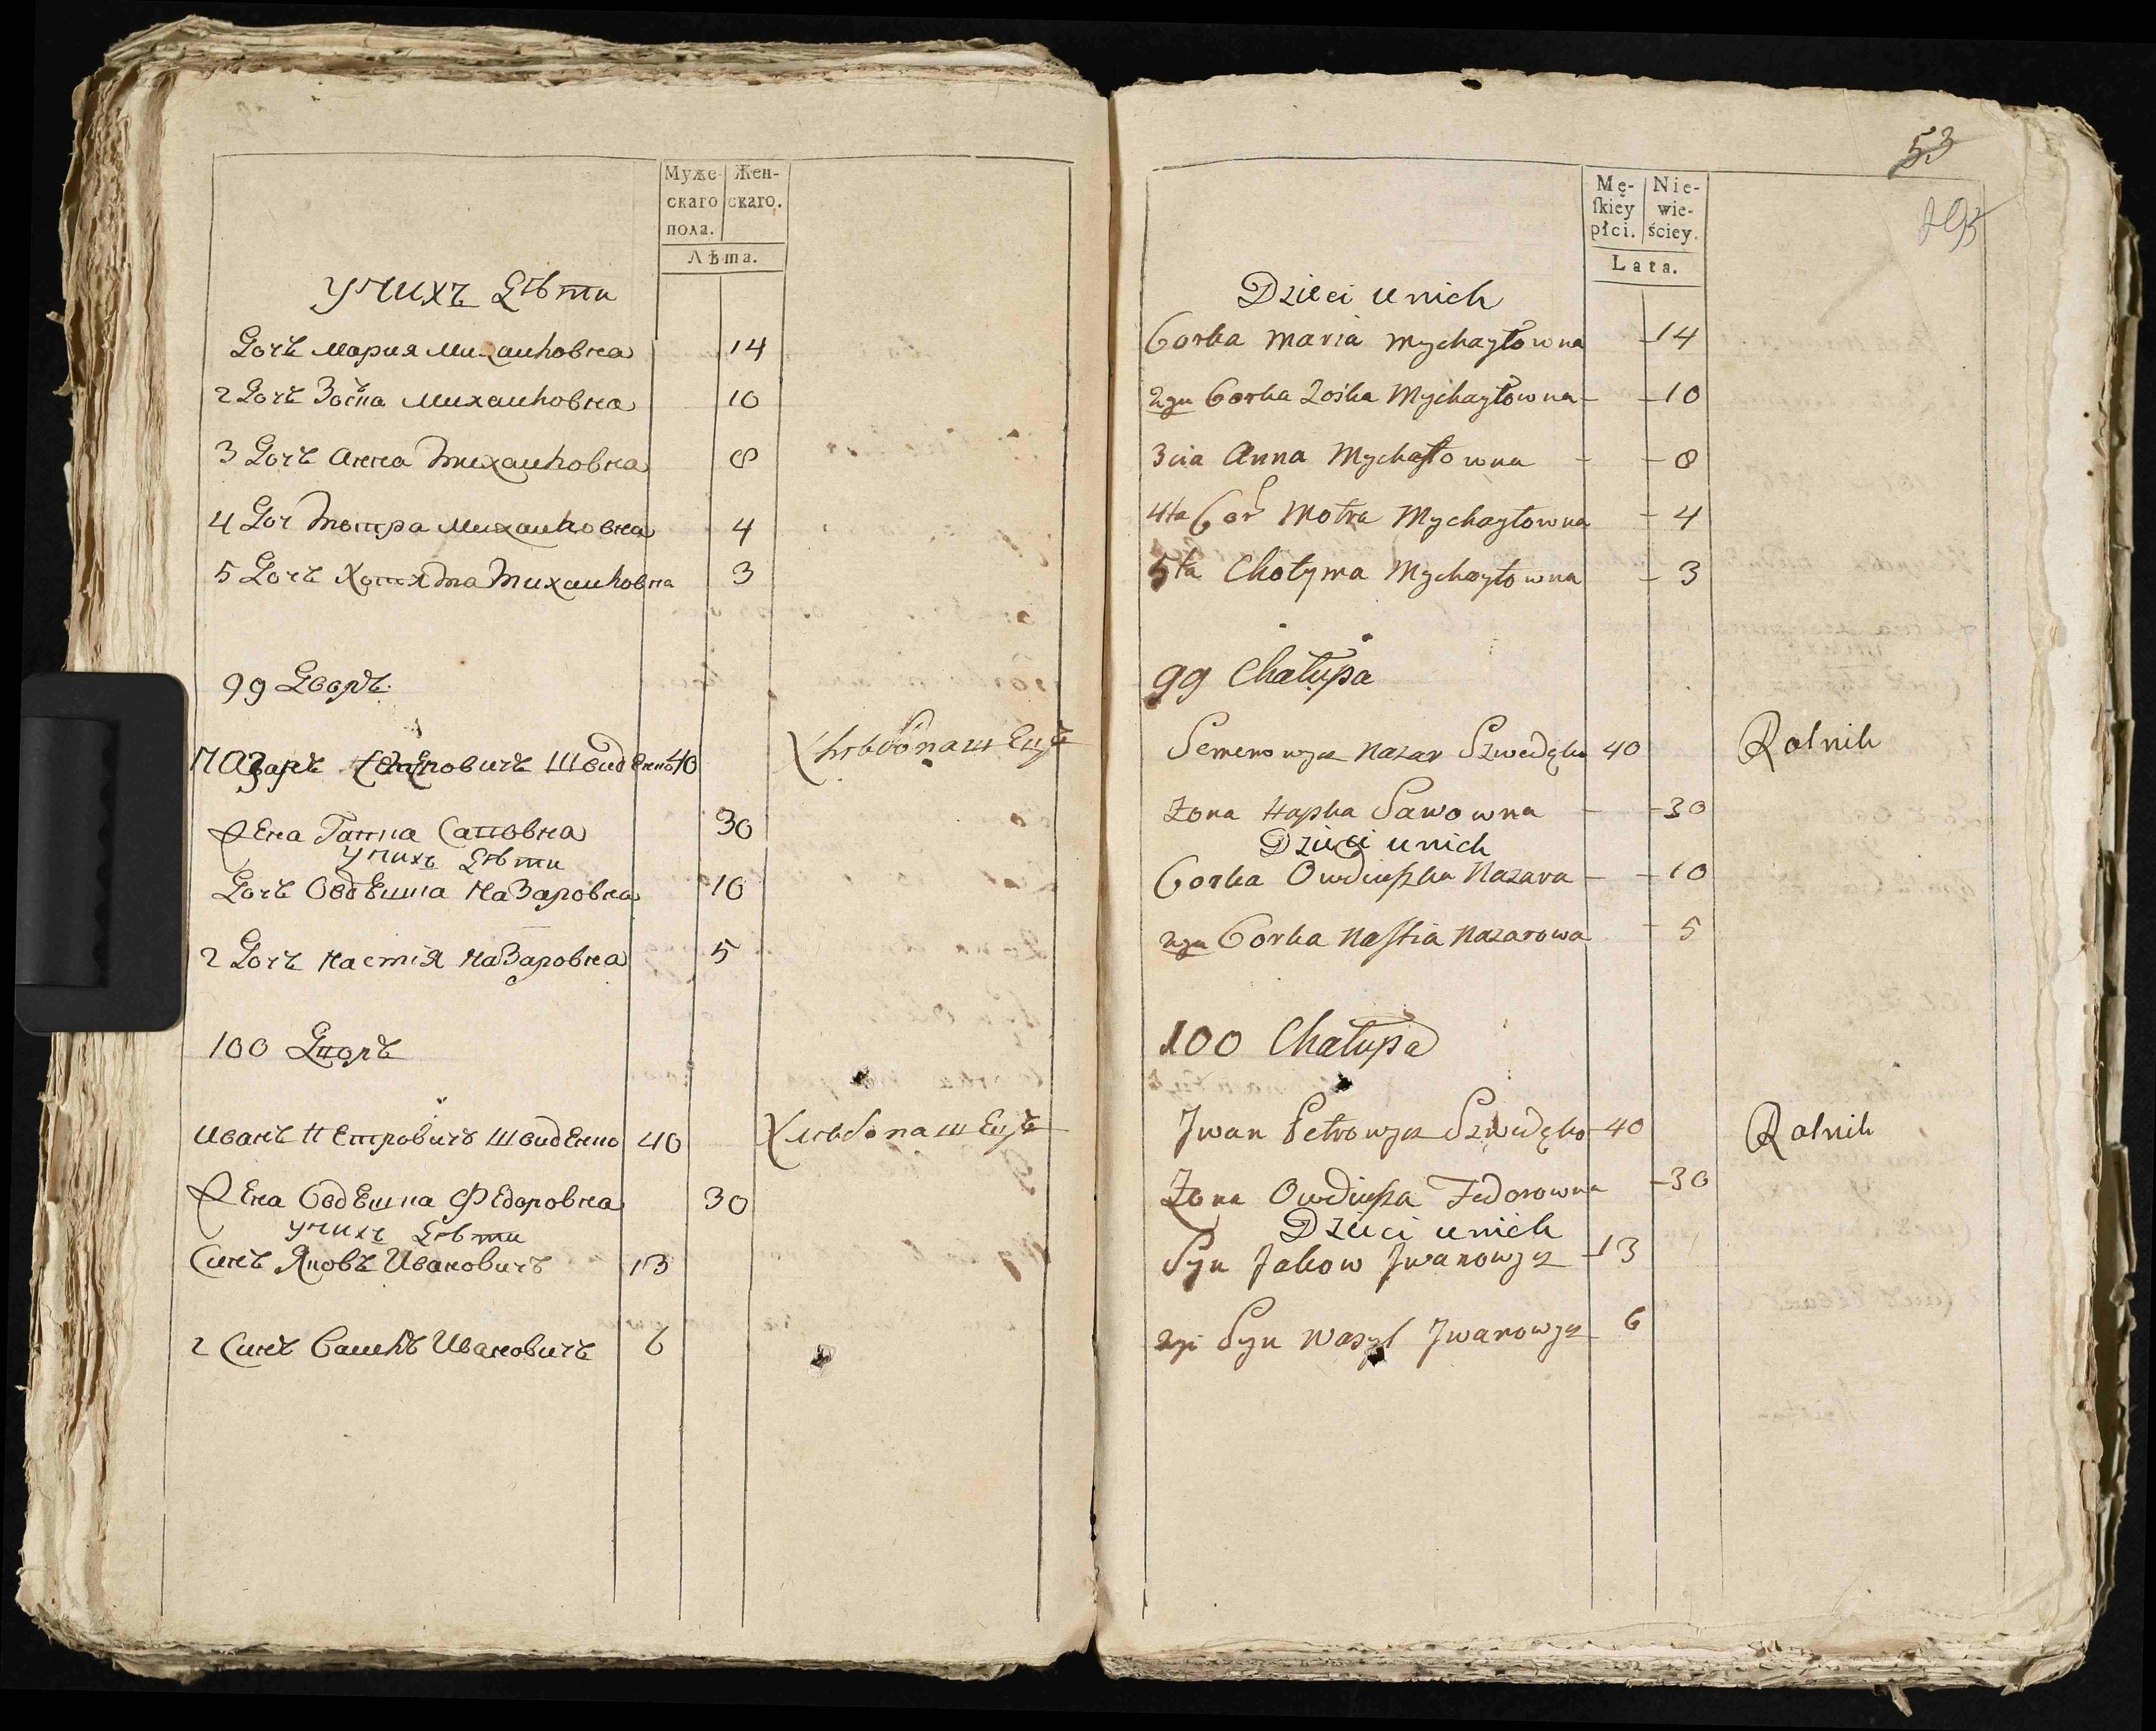 Муже-
скаго
пола.
Жен-
скаго.
Лѣта.
У нихъ дѣти
Дочъ Мария Михаиловна 14
2 Дочъ Зоска Михаиловна 10
3 Дочъ Анна Михаиловна 8
4 Доч Мотра Михаиловна 4
5 Дочъ Хотяма Михаиловна 3
99 Дворъ
Назаръ Швиденко 40 Хлѣбопашецъ
Жена Гапка Савовна 30
У нихъ дѣти
Дочъ Овдюшка Назаровна 10
2 Дочъ Настія Назаровна 5
100 Дворъ
Иванъ Петровичъ Швиденко 40 Хлѣбопашецъ
Жена Федоровна 30
У нихъ дѣти
Синъ Яковъ Ивановичъ 13
2 Синъ Василь Ивановичъ 6
53
Mę-
ſkiey
płci.
Nie-
wie-
ściey.
Lata.
Dzieci u nich
Corka Maria Mychayłowna - 14
2ga Corka Zośka Mychayłowna - - 10
3cia Anna Mychałowna - - 8
4ta Cor Motra Mychayłowna - 4
5ta Chotyma Mychayłowna - 3
99 Chałupa
Semenowycz Nazar Szwedęko 40 Rolnik
Żona Hapka Sawowna - - 30
Dzieci u nich
Corka Owdiuszka Nazara - - 10
2ga Corka Naſtia Nazarowa - 5
100 Chałupa
Jwan Petrowycz Szwedęko - 40 Rolnik
Żona Owdiusza Fedorowna - 30
Dzieci u nich
Syn Jakow Jwanowycz - 13
2gi Syn Wasyl Jwanowycz 6